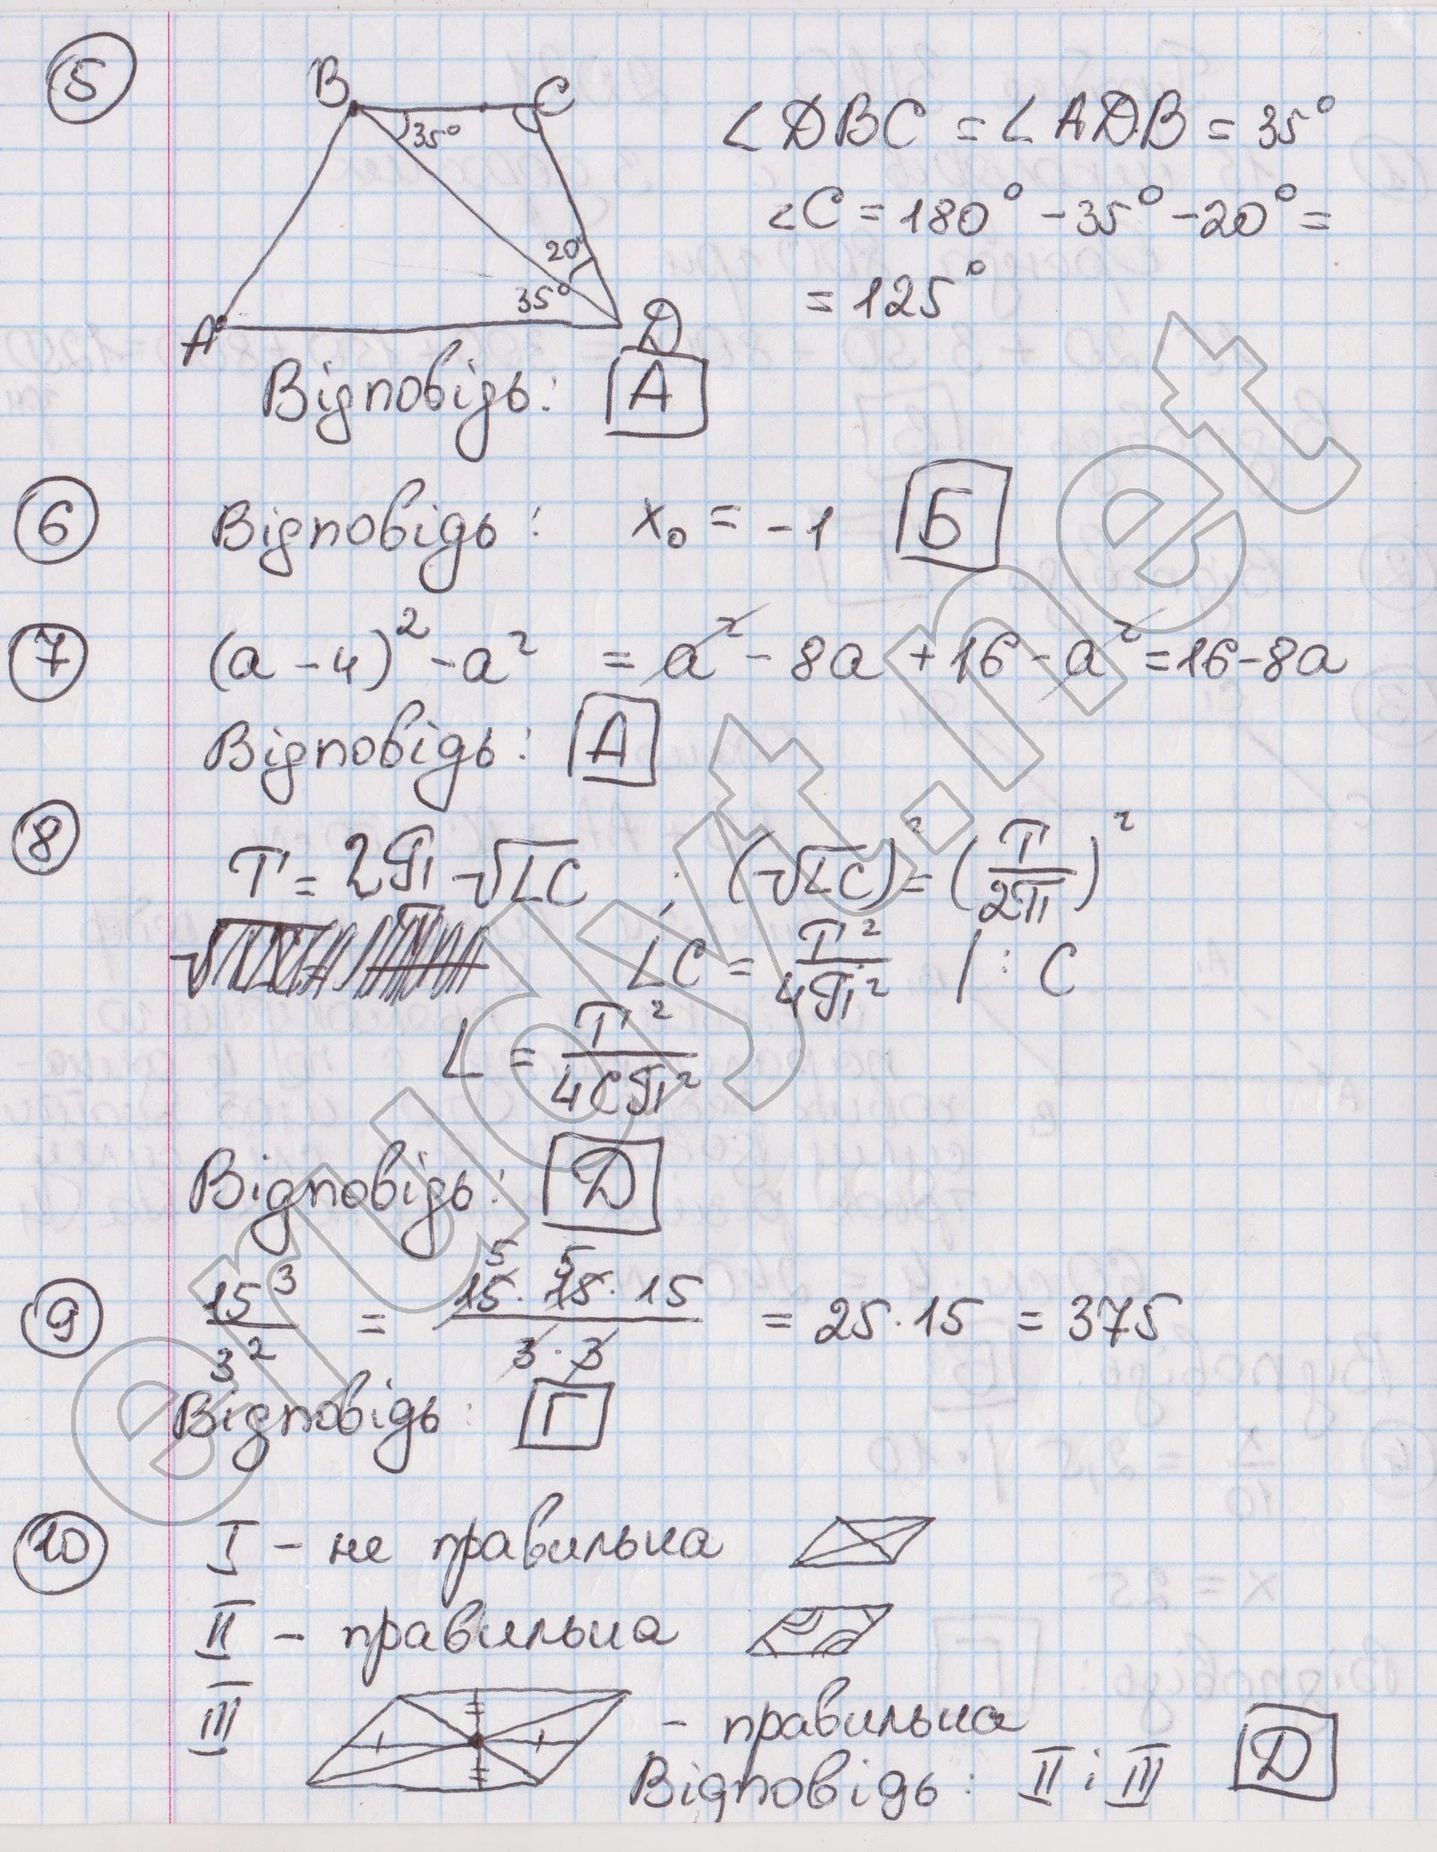 5
B C
35°
20°
35°
A D
∠DBC = ∠ADB = 35°
∠C = 180° - 35° - 20° =
= 125°
Відповідь: А
6 Відповідь: x₀ = -1 Б
7 (a - 4)² - a² = a² - 8a + 16 - a² = 16 - 8a
Відповідь: А
8 T = 2π√LC ; (√LC)² = (T/2π)²
LC = T²/4π² | : C
L = T²/4Cπ²
Відповідь: Д
9 15³/3² = 15·15·15/3·3 = 25·15 = 375
5 5
Відповідь: Г
10 I - не правильна
II - правильна
III - правильна
Відповідь: II і III Д
erudyt.net